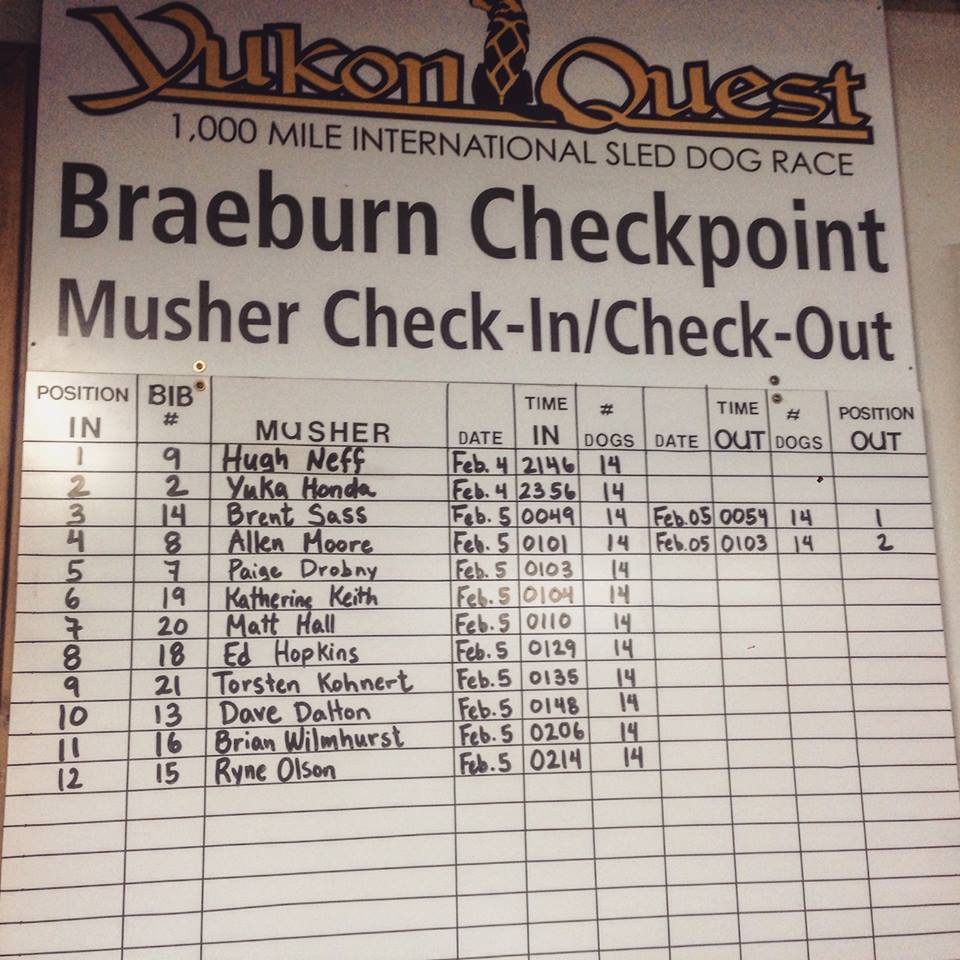 Yukon Quest
1,000 MILE INTERNATIONAL SLED DOG RACE
Braeburn Checkpoint
Musher Check-In/Check-Out
POSITION IN BIB # MUSHER DATE TIME IN # DOGS DATE TIME OUT # DOGS POSITION OUT
1 9 Hugh Neff Feb. 4 2146 14
2 2 Yuka Honda Feb. 4 2356 14
3 14 Brent Sass Feb. 5 0049 14 Feb.05 0054 14 1
4 8 Allen Moore Feb. 5 0101 14 Feb.05 0103 14 2
5 7 Paige Drobny Feb. 5 0103 14
6 19 Katherine Keith Feb. 5 0104 14
7 20 Matt Hall Feb. 5 0110 14
8 18 Ed Hopkins Feb. 5 0129 14
9 21 Torsten Kohnert Feb. 5 0135 14
10 13 Dave Dalton Feb. 5 0148 14
11 16 Brian Wilmhurst Feb. 5 0206 14
12 15 Ryne Olson Feb. 5 0214 14